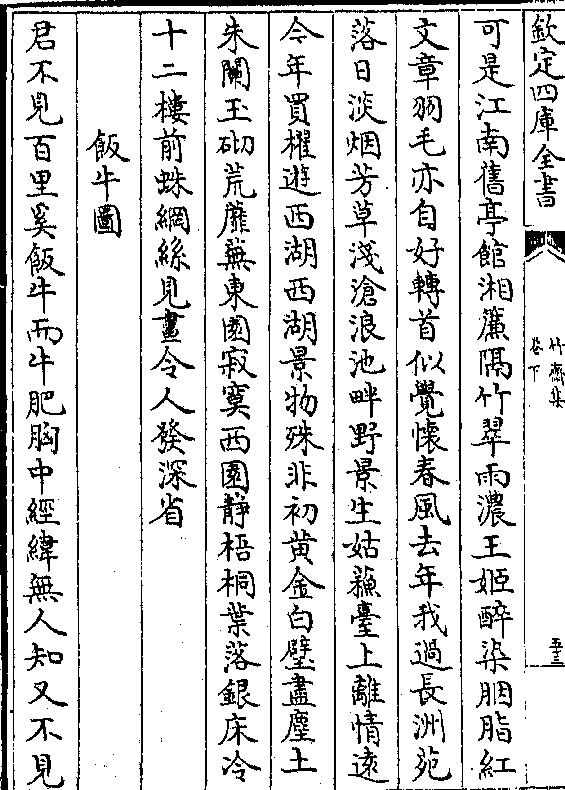 欽定四庫全書
竹齋集
卷下
五三
可是江南舊亭館湘簾隔竹翠雨濃王姬醉染胭脂紅
文章羽毛亦自好轉首似覺懷春風去年我過長洲苑
落日淡烟芳草淺滄浪池畔野景生姑蘓臺上離情遠
今年買櫂遊西湖西湖景物殊非初黄金白璧盡塵土
朱闌玉砌荒蘼蕪東園寂寞西園靜梧桐葉落銀床冷
十二樓前蛛網絲見畫令人發深省
飯牛圖
君不見百里奚飯牛而牛肥胸中經緯無人知又不見